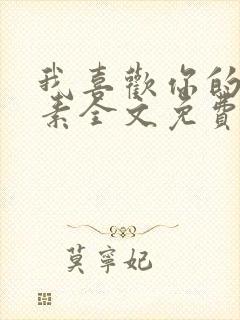 我喜歡你的
素全文免費
莫寧妃